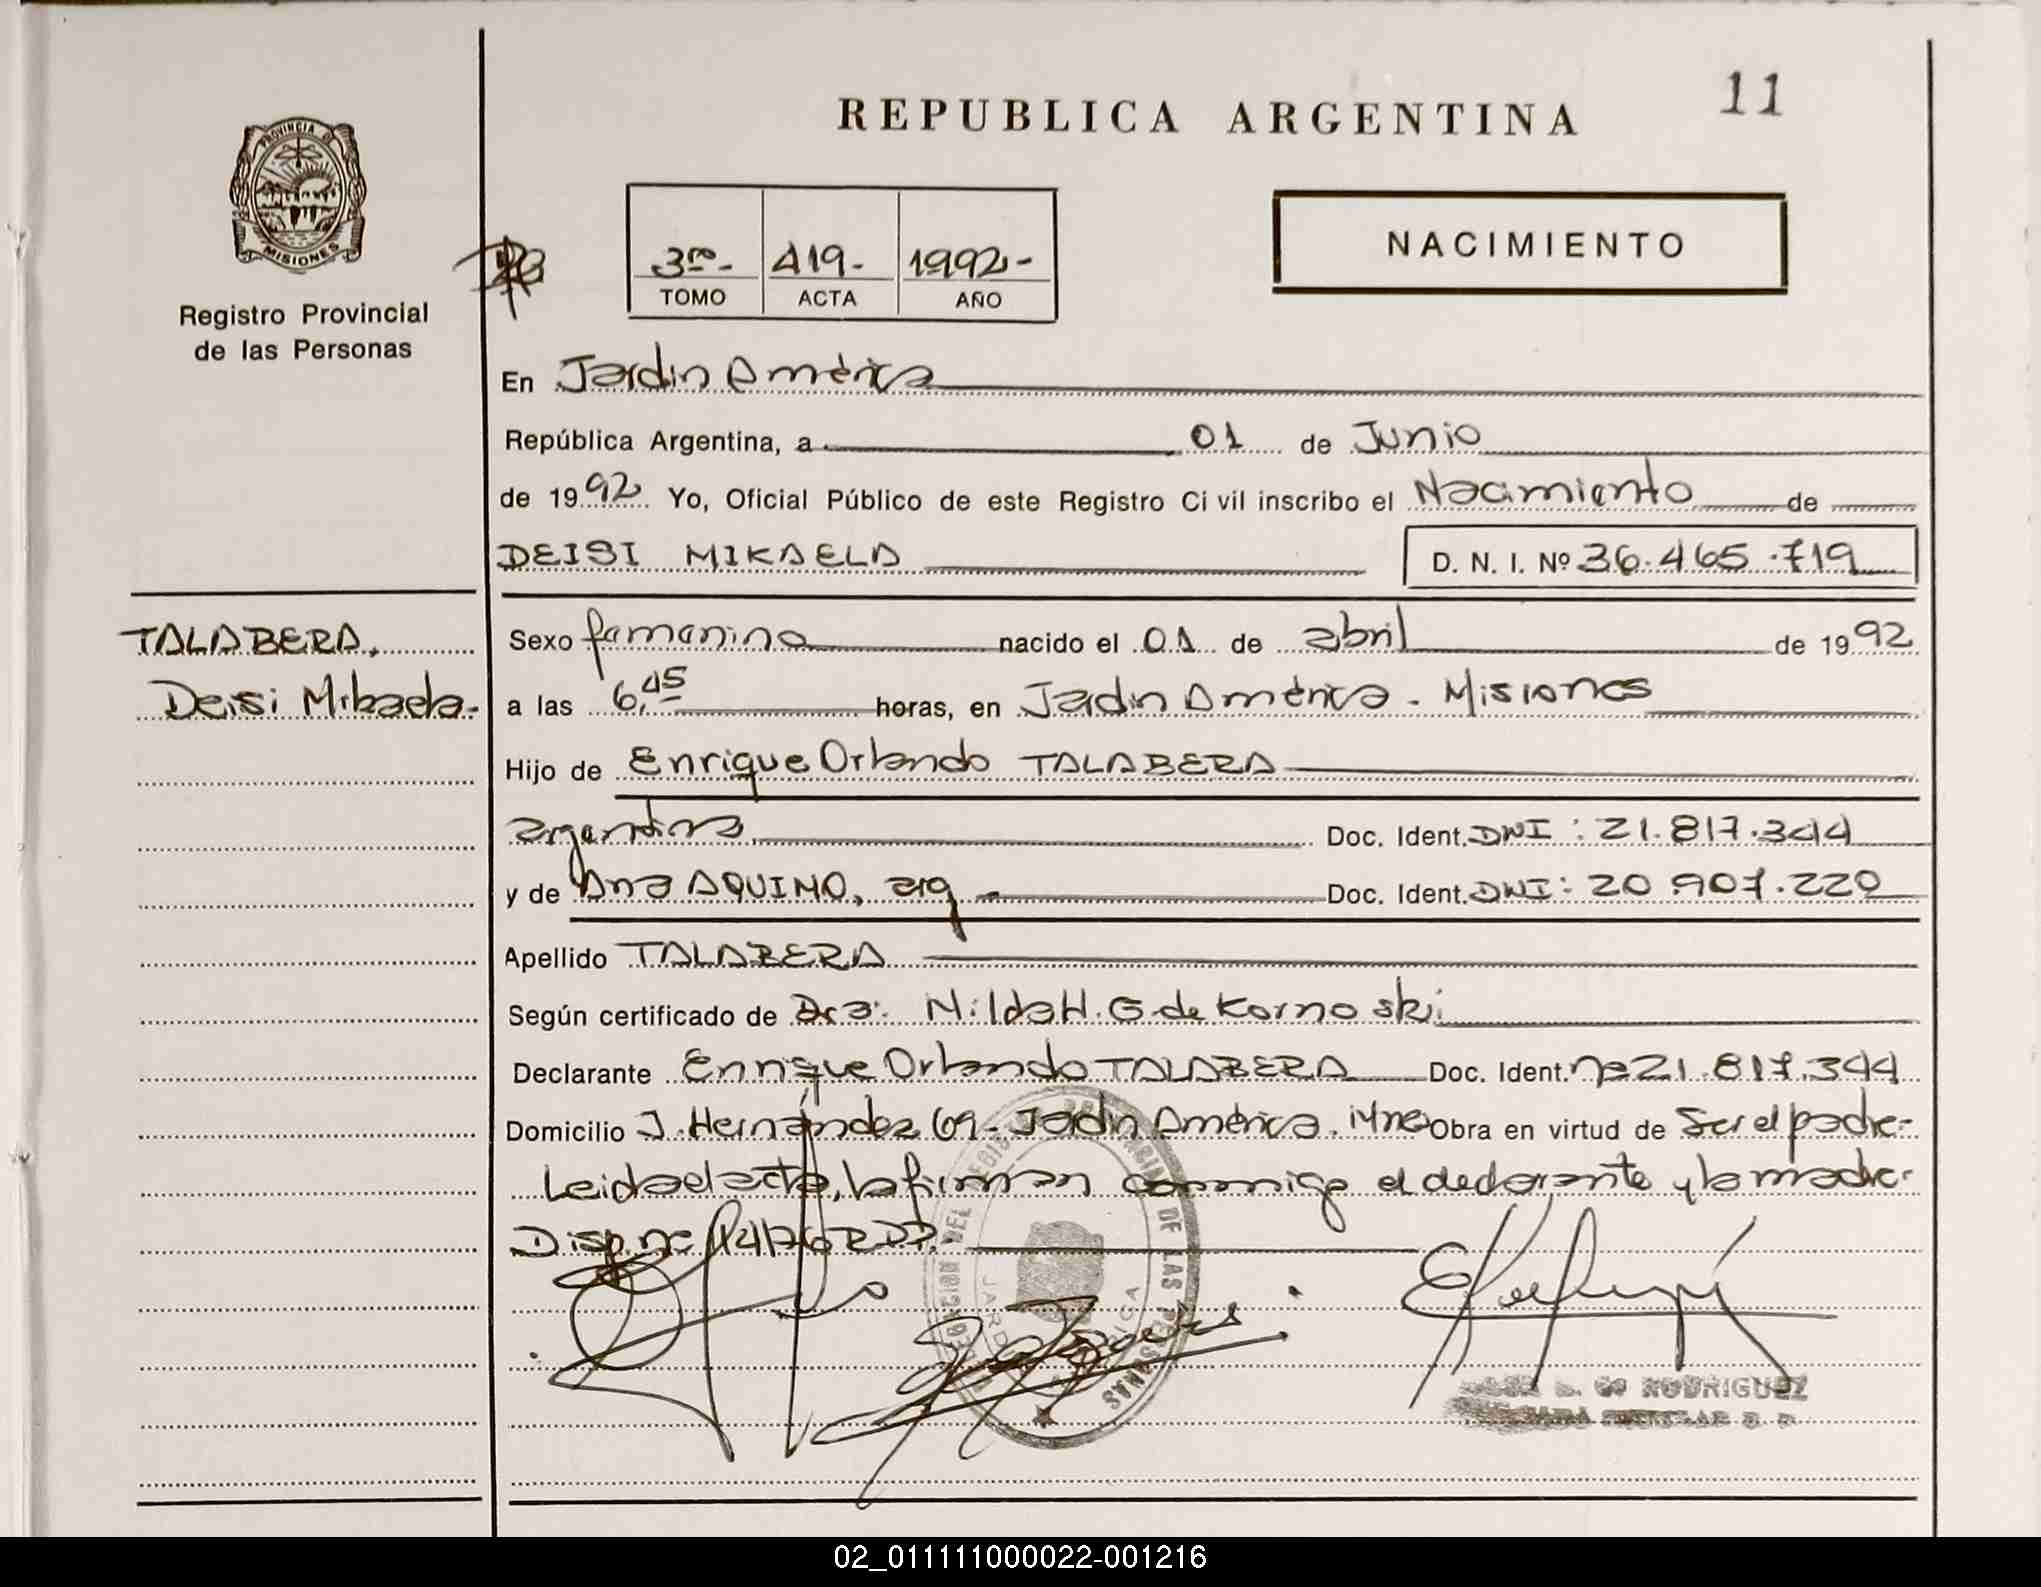 REPUBLICA ARGENTINA
11
PROVINCIA DE
MISIONES
Registro Provincial
de las Personas
3ro- 419- 1992-
TOMO ACTA AÑO
NACIMIENTO
En Jardin América
República Argentina, a 01 de Junio
de 1992. Yo, Oficial Público de este Registro Civil inscribo el Nacimiento de
DEISI MIKAELA
D. N. I. Nº 36.465.719
TALABERA,
Deisi Mikaela-
Sexo femenino nacido el 01 de abril de 1992
a las 6,45 horas, en Jardin América - Misiones
Hijo de Enrique Orlando TALABERA
argentina Doc. Ident. DNI: 21.817.344
y de Ana AQUINO, arg Doc. Ident. DNI: 20.907.220
Apellido TALABERA
Según certificado de Dra. Nilda H. G. de Kornoski
Declarante Enrique Orlando TALABERA Doc. Ident. nº 21.817.344
Domicilio J. Hernández 69- Jardin América. Mnes Obra en virtud de Ser el padre-
Leida el acta, la firman conmigo el declarante y la madre-
Disp. nº
RODRIGUEZ
02_011111000022-001216